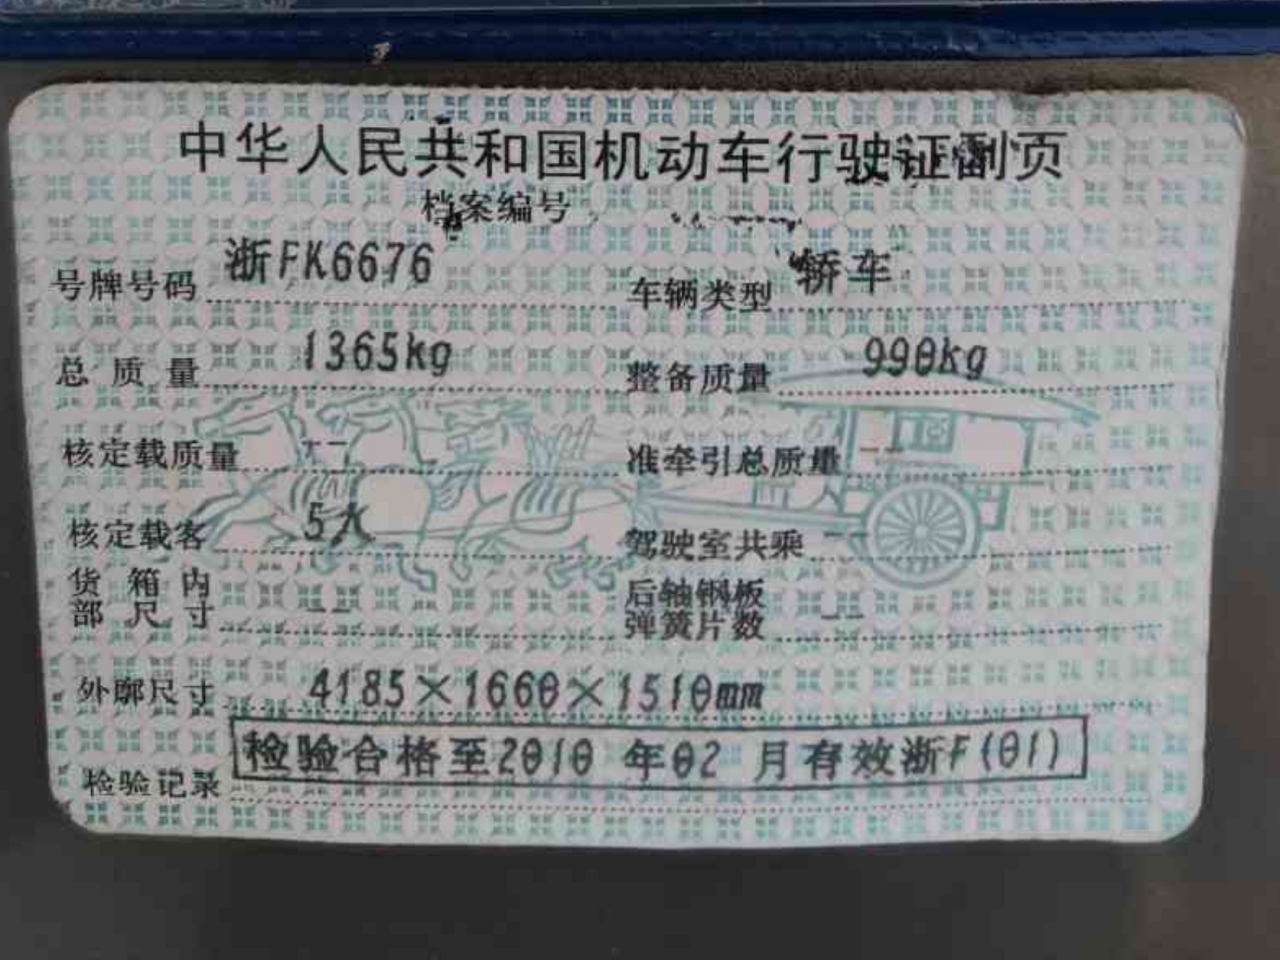 中华人民共和国机动车行驶证副页
档案编号
号牌号码 浙FK6676 车辆类型 轿车
总质量 1365kg 整备质量 990kg
核定载质量 -- 准牵引总质量 --
核定载客 5人 驾驶室共乘 --
货箱内部尺寸 -- 后轴钢板弹簧片数 --
外廓尺寸 4185×1660×1510mm
检验记录 检验合格至2010 年02 月有效浙F(01)